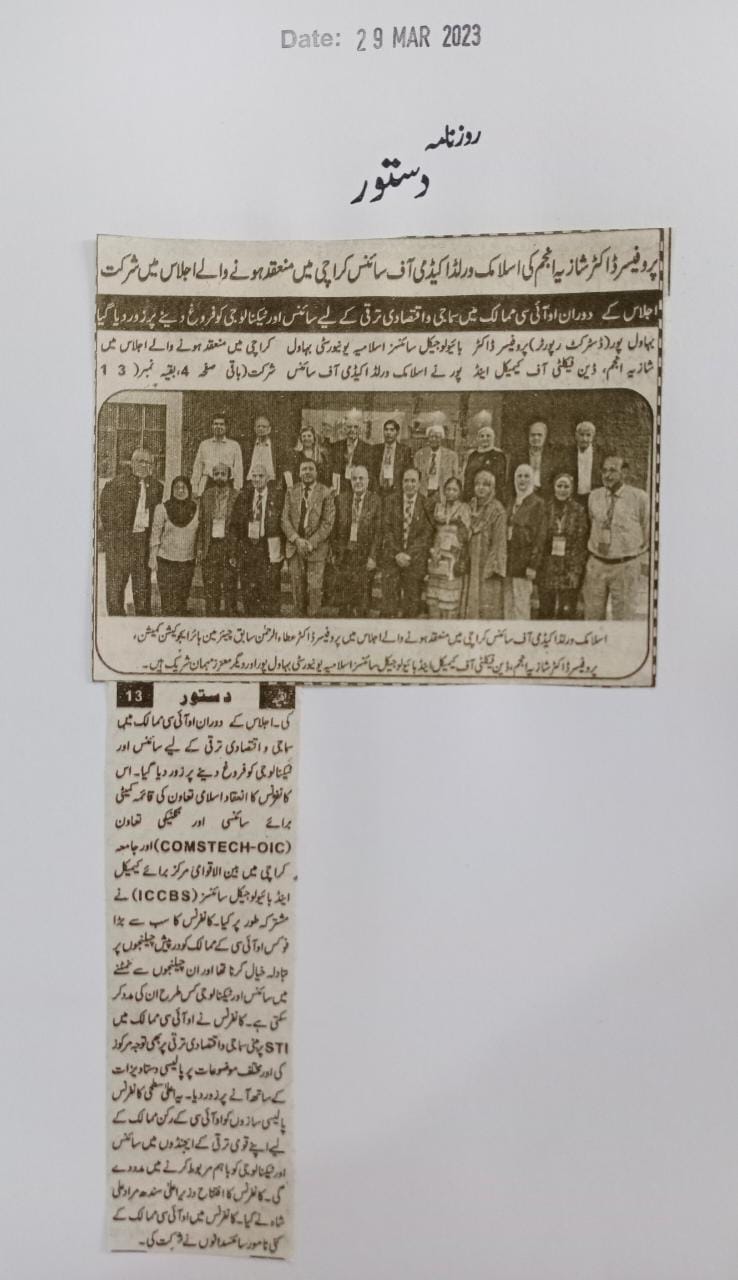 Date: 29 MAR 2023
روزنامہ
دستور
پروفیسر ڈاکٹر شازیہ انجم کی اسلامک ورلڈ اکیڈمی آف سائنس کراچی میں منعقد ہونے والے اجلاس میں شرکت
اجلاس کے دوران او آئی سی ممالک میں سماجی و اقتصادی ترقی کے لیے سائنس اور ٹیکنالوجی کو فروغ دینے پر زور دیا گیا
بہاول پور (ڈسٹرکٹ رپورٹر) پروفیسر ڈاکٹر
شازیہ انجم، ڈین فیکلٹی آف کیمیکل اینڈ
بائیولوجیکل سائنسز اسلامیہ یونیورسٹی بہاول
پور نے اسلامک ورلڈ اکیڈمی آف سائنس
کراچی میں منعقد ہونے والے اجلاس میں
شرکت (باقی صفحہ 4، بقیہ نمبر 13)
اسلامک ورلڈ اکیڈمی آف سائنس کراچی میں منعقد ہونے والے اجلاس میں پروفیسر ڈاکٹر عطاء الرحمٰن سابق چیئرمین ہائر ایجوکیشن کمیشن،
پروفیسر ڈاکٹر شازیہ انجم، ڈین فیکلٹی آف کیمیکل اینڈ بائیولوجیکل سائنسز اسلامیہ یونیورسٹی بہاول پور اور دیگر معزز مہمان شریک ہیں۔
بقیہ دستور 13
کی۔ اجلاس کے دوران او آئی سی ممالک میں
سماجی و اقتصادی ترقی کے لیے سائنس اور
ٹیکنالوجی کو فروغ دینے پر زور دیا گیا۔ اس
کانفرنس کا انعقاد اسلامی تعاون کی قائمہ کمیٹی
برائے سائنسی اور تکنیکی تعاون
(COMSTECH-OIC) اور جامعہ
کراچی میں بین الاقوامی مرکز برائے کیمیکل
اینڈ بائیولوجیکل سائنسز (ICCBS) نے
مشترکہ طور پر کیا۔ کانفرنس کا سب سے بڑا
فوکس او آئی سی کے ممالک کو درپیش چیلنجوں پر
تبادلہ خیال کرنا تھا اور ان چیلنجوں سے نمٹنے
میں سائنس اور ٹیکنالوجی کس طرح ان کی مدد کر
سکتی ہے۔ کانفرنس نے او آئی سی ممالک میں
STI پر مبنی سماجی و اقتصادی ترقی پر بھی توجہ مرکوز
کی اور مختلف موضوعات پر پالیسی دستاویزات
کے ساتھ آنے پر زور دیا۔ یہ اعلیٰ سطحی کانفرنس
پالیسی سازوں کو او آئی سی کے رکن ممالک کے
لیے اپنے قومی ترقی کے ایجنڈوں میں سائنس
اور ٹیکنالوجی کو باہم مربوط کرنے میں مدد دے
گی۔ کانفرنس کا افتتاح وزیر اعلیٰ سندھ مراد علی
شاہ نے کیا۔ کانفرنس میں او آئی سی ممالک کے
کئی نامور سائنسدانوں نے شرکت کی۔